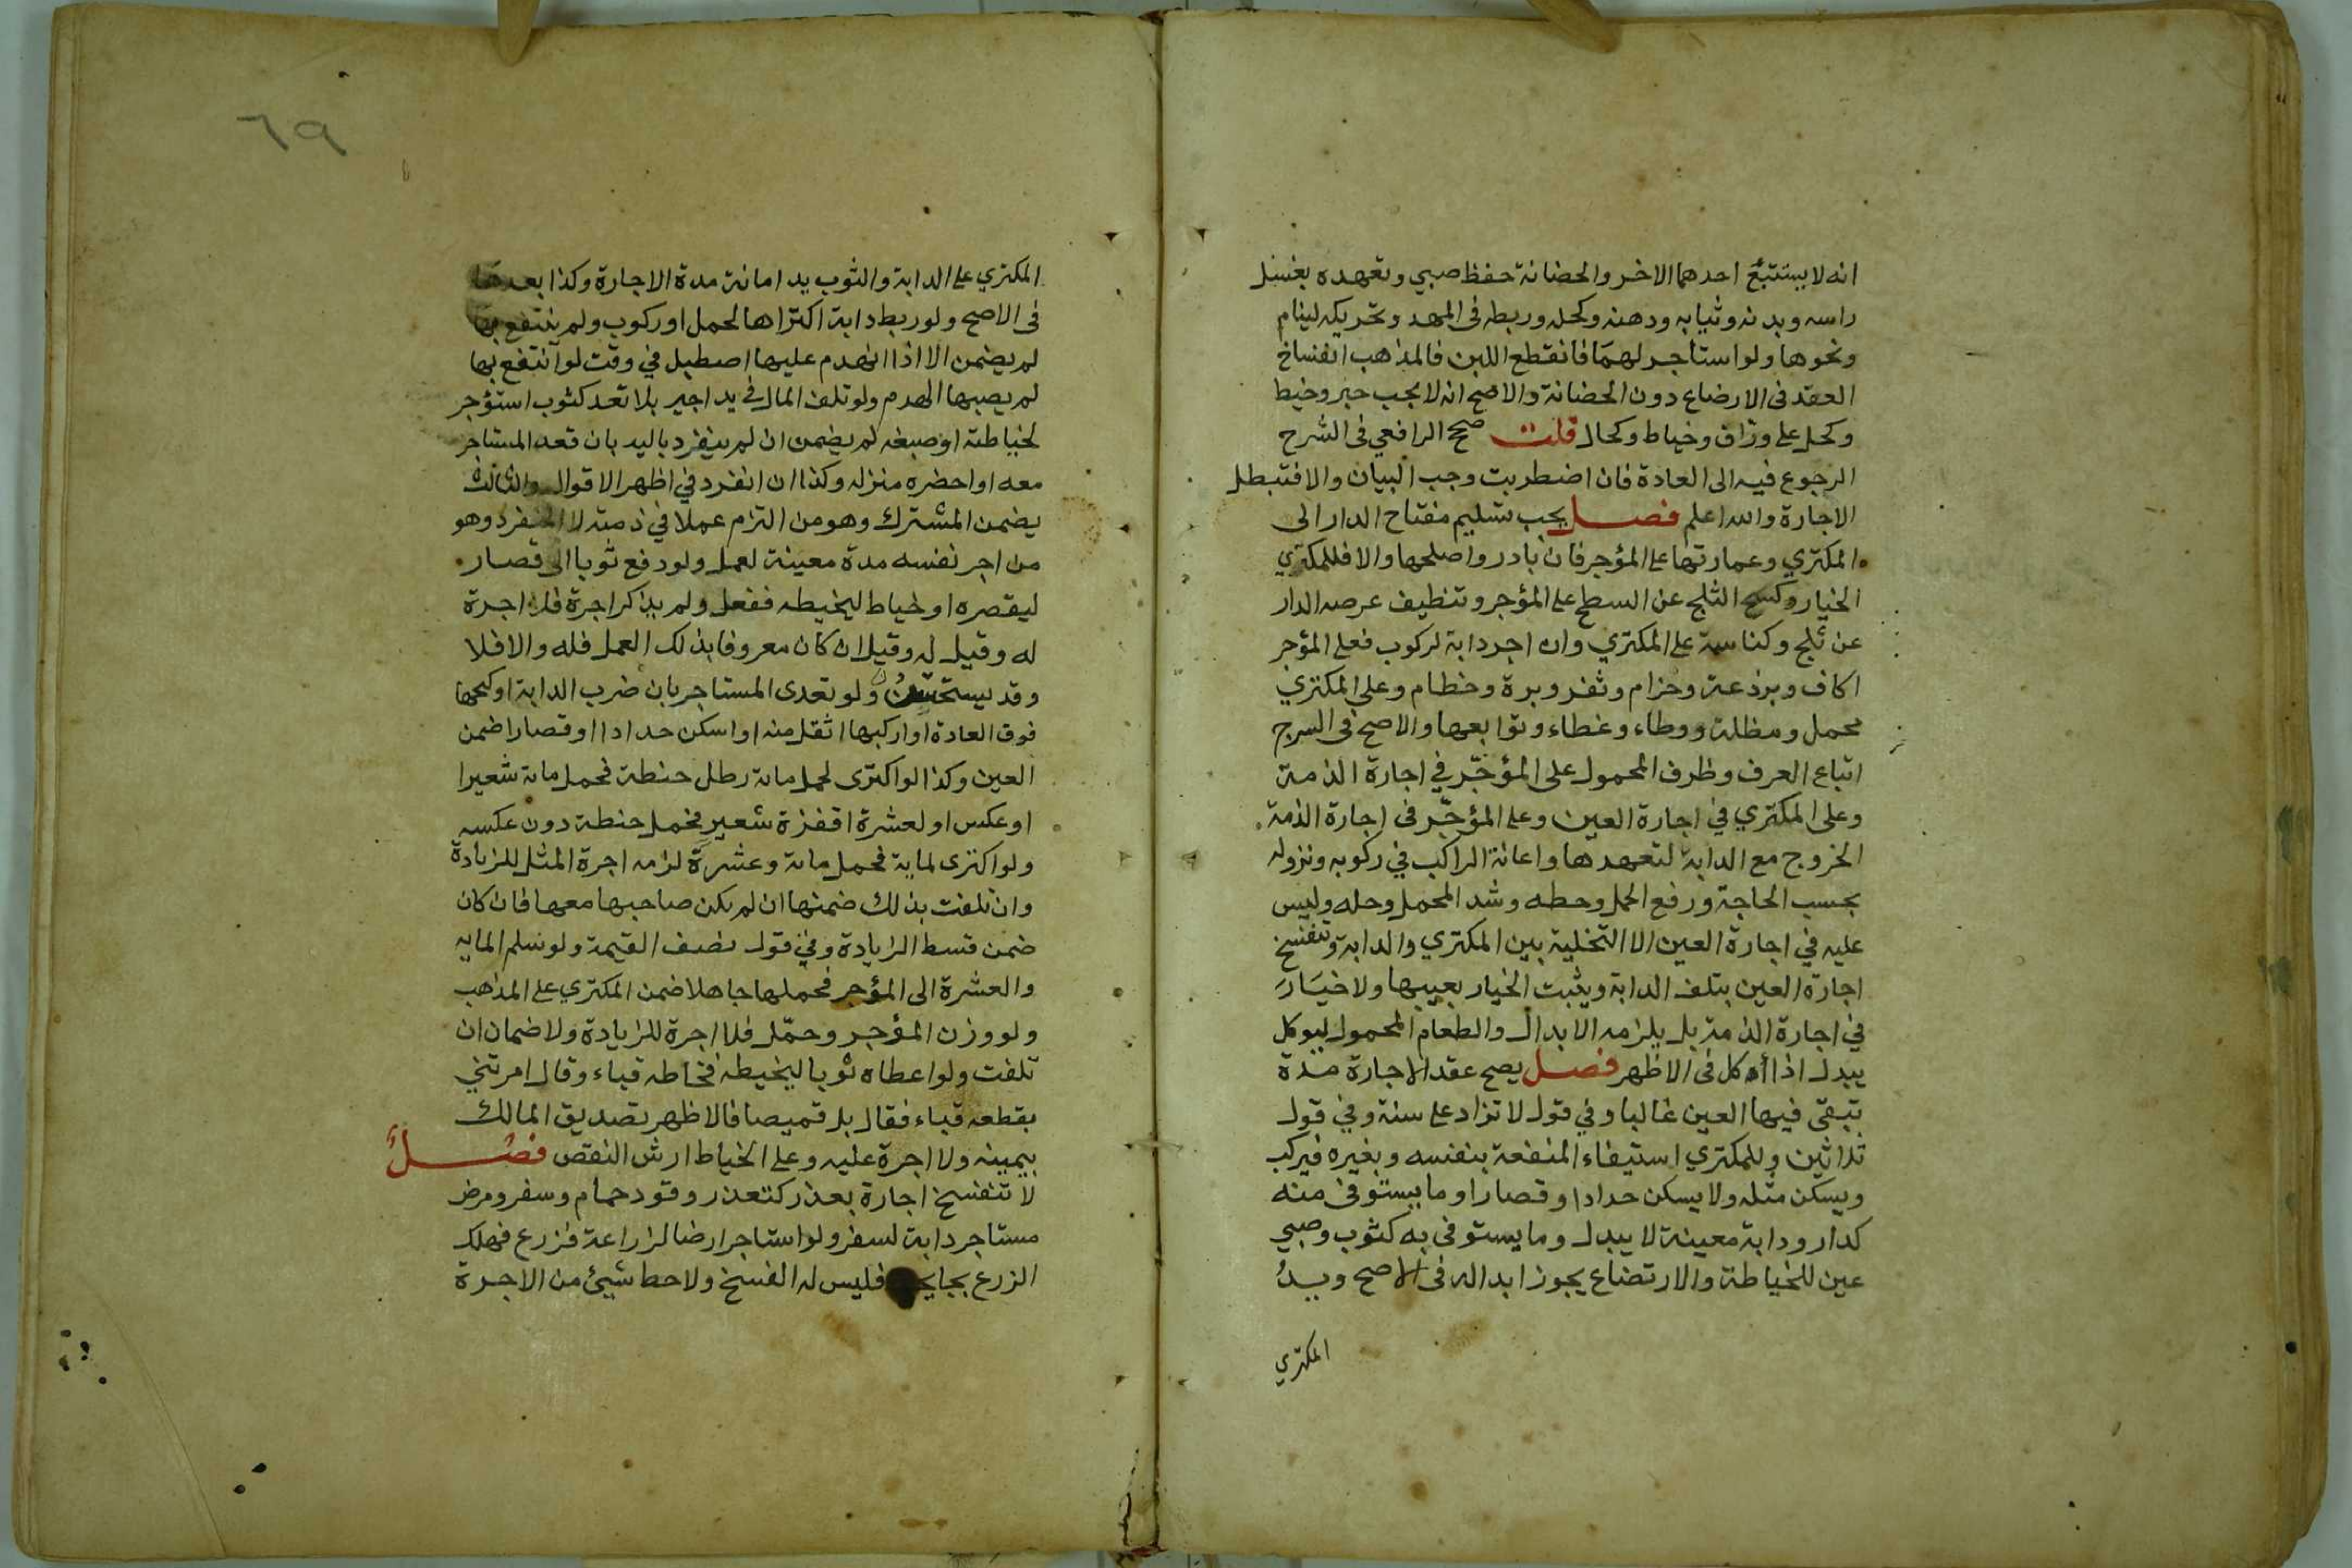 انه لا يستتبع احدهما الاخر والحضانة حفظ صبي وتعهده بغسل
راسه وبدنه وثيابه ودهنه وكحله وربطه في المهد وتحريكه لينام
ونحوها ولو استاجر لهما فانقطع اللبن فالمذهب انفساخ
العقد في الارضاع دون الحضانة والاصح انه لا يجب حبر وخيط
وكحل على وراق وخياط وكحال قلت صحح الرافعي في الشرح
الرجوع فيه الى العادة فان اضطربت وجب البيان والا فتبطل
الاجارة والله اعلم فصل يجب تسليم مفتاح الدار الى
المكتري وعمارتها على المؤجر فان بادر واصلحها والا فللمكتري
الخيار وكسح الثلج عن السطح على المؤجر وتنظيف عرصه الدار
عن ثلج وكناسة على المكتري وان اجر دابة لركوب فعلى المؤجر
اكاف وبرذعة وحزام وثفر وبرة وخطام وعلى المكتري
محمل ومظلة ووطاء وغطاء وتوابعها والاصح في السرج
اتباع العرف وظرف المحمول على المؤجّر في اجارة الذمة
وعلى المكتري في اجارة العين وعلى المؤجّر في اجارة الذمة
الخروج مع الدابة لتعهدها واعانة الراكب في ركوبه ونزوله
بحسب الحاجة ورفع الحمل وحطه وشد المحمل وحله وليس
عليه في اجارة العين الا التخلية بين المكتري والدابة وتنفسخ
اجارة العين بتلف الدابة ويثبت الخيار بعيبها ولا خيار
في اجارة الذمة بل يلزمه الابدال والطعام المحمول ليوكل
يبدل اذا أكل في الاظهر فصل يصح عقد الاجارة مدة
تبقى فيها العين غالبا وفي قول لا تزاد على سنة وفي قول
ثلاثين وللمكتري استيفاء المنفعة بنفسه وبغيره فيركب
ويسكن مثله ولا يسكن حدادا وقصارا وما يستوفى منه
كدار ودابة معينة لا يبدل وما يستوفى به كثوب وصبي
عين للخياطة والارتضاع يجوز ابداله في الاصح ويدُ
المكتري
٦٩
المكتري على الدابة والثوب يد امانة مدة الاجارة وكذا بعدها
في الاصح ولو ربط دابة اكتراها لحمل او ركوب ولم ينتفع بها
لم يضمن الا اذا انهدم عليها اصطبل في وقت لو انتفع بها
لم يصبها الهدم ولو تلف المال في يد اجير بلا تعد كثوب استؤجر
لخياطته او صبغه لم يضمن ان لم ينفرد باليد بان قعد المستاجر
معه او احضره منزله وكذا ان انفرد في اظهر الاقوال والثالث
يضمن المشترك وهو من التزم عملا في ذمته لا المنفرد وهو
من اجر نفسه مدة معينة لعمل ولو دفع ثوبا الى قصار
ليقصره او خياط ليخيطه ففعل ولم يذكر اجرة فلا اجرة
له وقيل له وقيل ان كان معروفا بذلك العمل فله والا فلا
وقد يستحسن ولو تعدى المستاجر بان ضرب الدابة او كبحها
فوق العادة او اركبها اثقل منه او اسكن حدادا او قصارا ضمن
العين وكذا لو اكترى لحمل مائة رطل حنطة فحمل مائة شعيرا
او عكس او لعشرة اقفزة شعير فحمل حنطة دون عكسه
ولو اكترى لماية فحمل مائة وعشرة لزمه اجرة المثل للزيادة
وان تلفت بذلك ضمنها ان لم يكن صاحبها معها فان كان
ضمن قسط الزيادة وفي قول نصف القيمة ولو سلم الماية
والعشرة الى المؤجر فحملها جاهلا ضمن المكتري على المذهب
ولو وزن المؤجر وحمّل فلا اجرة للزيادة ولا ضمان ان
تلفت ولو اعطاه ثوبا ليخيطه فخاطه قباء وقال امرتني
بقطعه قباء فقال بل قميصا فالاظهر تصديق المالك
بيمينه ولا اجرة عليه وعلى الخياط ارش النقص فصل
لا تنفسخ اجارة بعذر كتعذر وقود حمام وسفر ومرض
مستاجر دابة لسفر ولو استاجر ارضا لزراعة فزرع فهلك
الزرع بجايحة فليس له الفسخ ولا حط شيئ من الاجرة